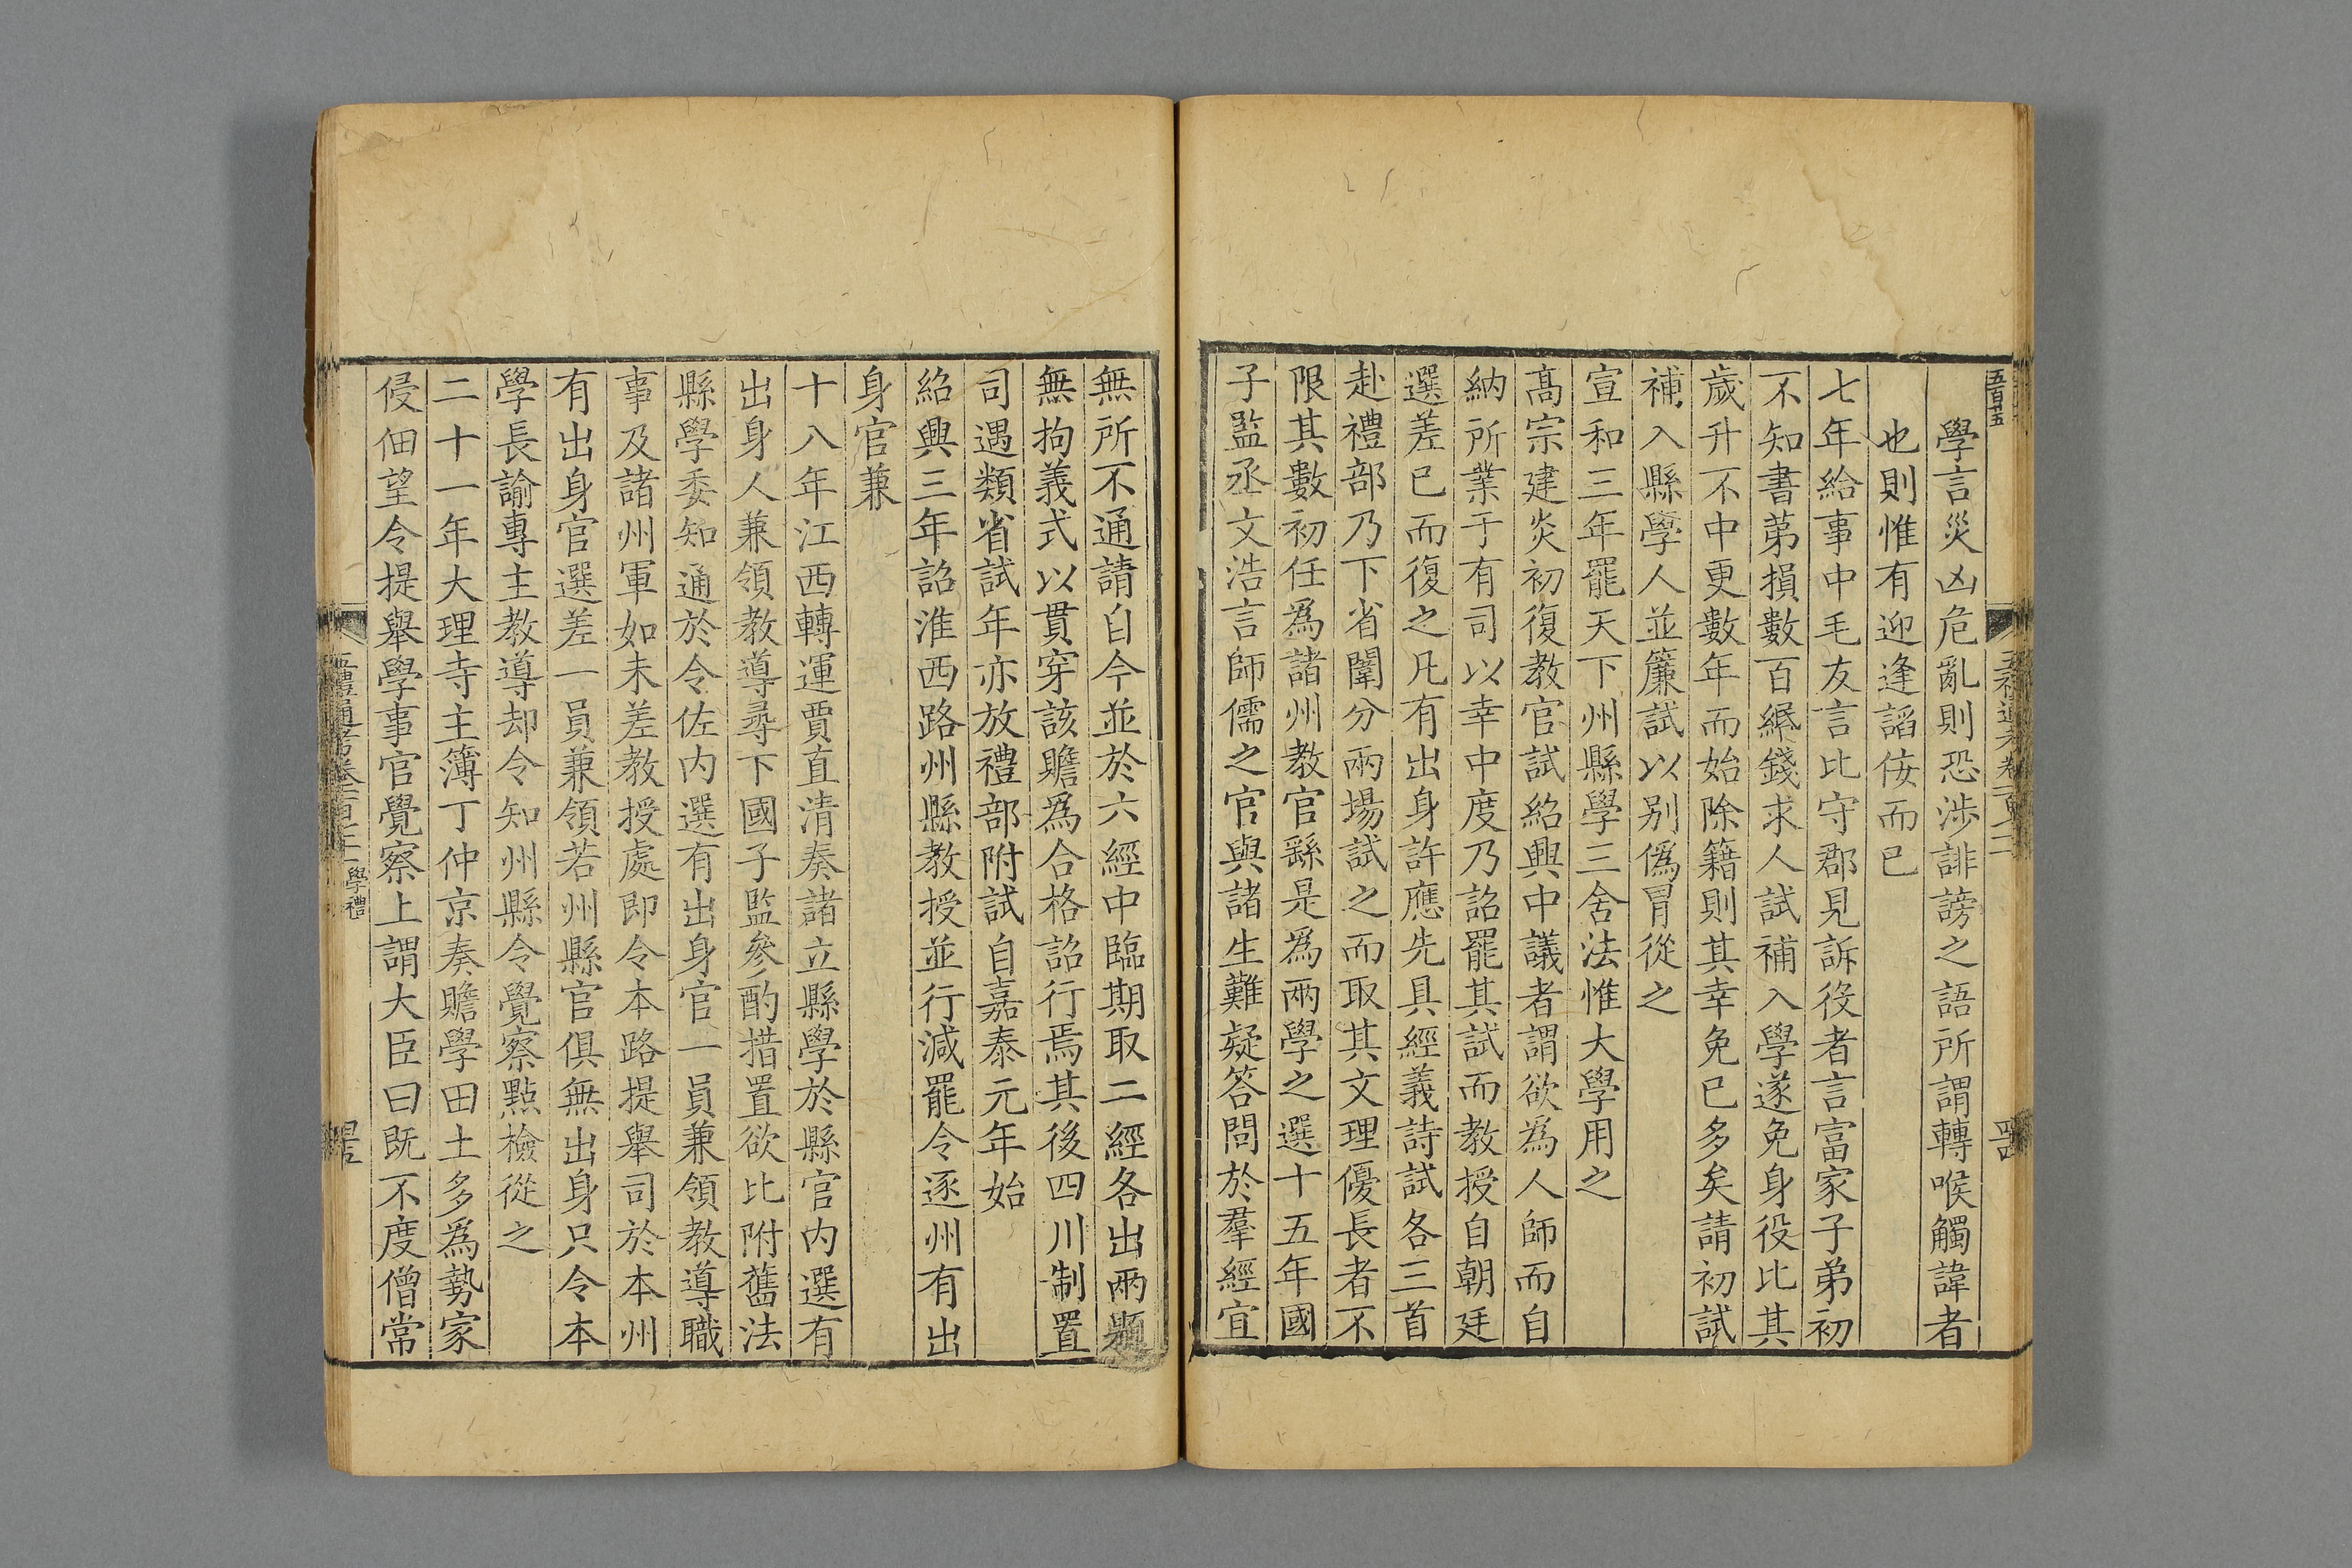 五百十五
學言災凶危亂則恐涉誹謗之語所謂轉喉觸諱者
也則惟有迎逢謟侫而已
七年給事中毛友言比守郡見訴役者言富家子弟初
不知書第損數百緡錢求人試補入學遂免身役比其
歲升不中更數年而始除籍則其幸免已多矣請初試
補入縣學人並簾試以别偽冒從之
宣和三年罷天下州縣學三舍法惟大學用之
髙宗建炎初復教官試紹興中議者謂欲為人師而自
納所業于有司以幸中度乃詔罷其試而教授自朝廷
選差已而復之凡有出身許應先具經義詩試各三首
赴禮部乃下省闈分兩塲試之而取其文理優長者不
限其數初任為諸州教官繇是為兩學之選十五年國
子監丞文浩言師儒之官與諸生難疑答問於羣經宜
無所不通請自今並於六經中臨期取二經各出兩題
無拘義式以貫穿該贍為合格詔行焉其後四川制置
司遇類省試年亦放禮部附試自嘉泰元年始
紹興三年詔淮西路州縣教授並行減罷令逐州有出
身官兼
十八年江西轉運賈直清奏諸立縣學於縣官内選有
出身人兼領教導尋下國子監參酌措置欲比附舊法
縣學委知通於令佐内選有出身官一員兼領教導職
事及諸州軍如未差教授處即令本路提舉司於本州
有出身官選差一員兼領若州縣官俱無出身只令本
學長諭專主教導却令知州縣令覺察點檢從之
二十一年大理寺主簿丁仲京奏贍學田土多為勢家
侵佃望令提舉學事官覺察上謂大臣曰既不度僧常
五禮通考卷一百七十二 學禮